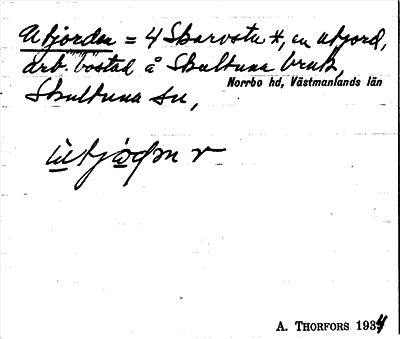 Utjorden = 4 Skarvsta *, en utjord,
arb. bostad å Skultuna bruk,
Norrbo hd, Västmanlands län
Skultuna sn,
A. THORFORS 1934